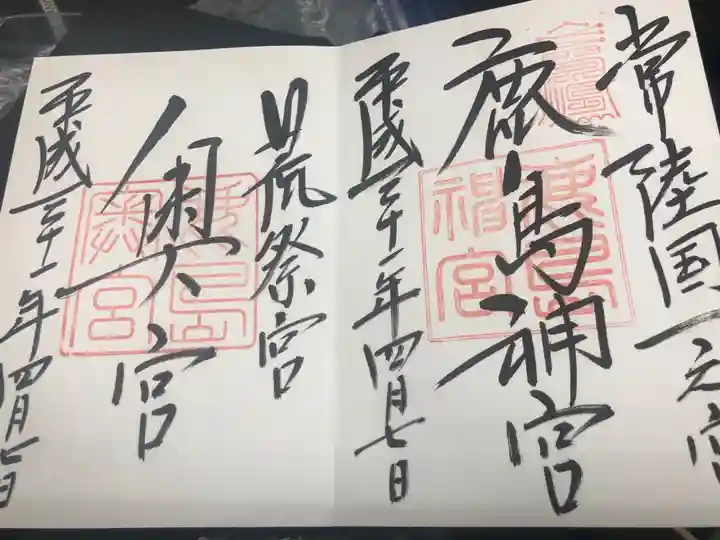 常陸国一之宮
鹿島神宮
鹿島神宮
平成三十一年四月七日
荒祭宮
奥宮
鹿島奥宮
平成三十一年四月七日